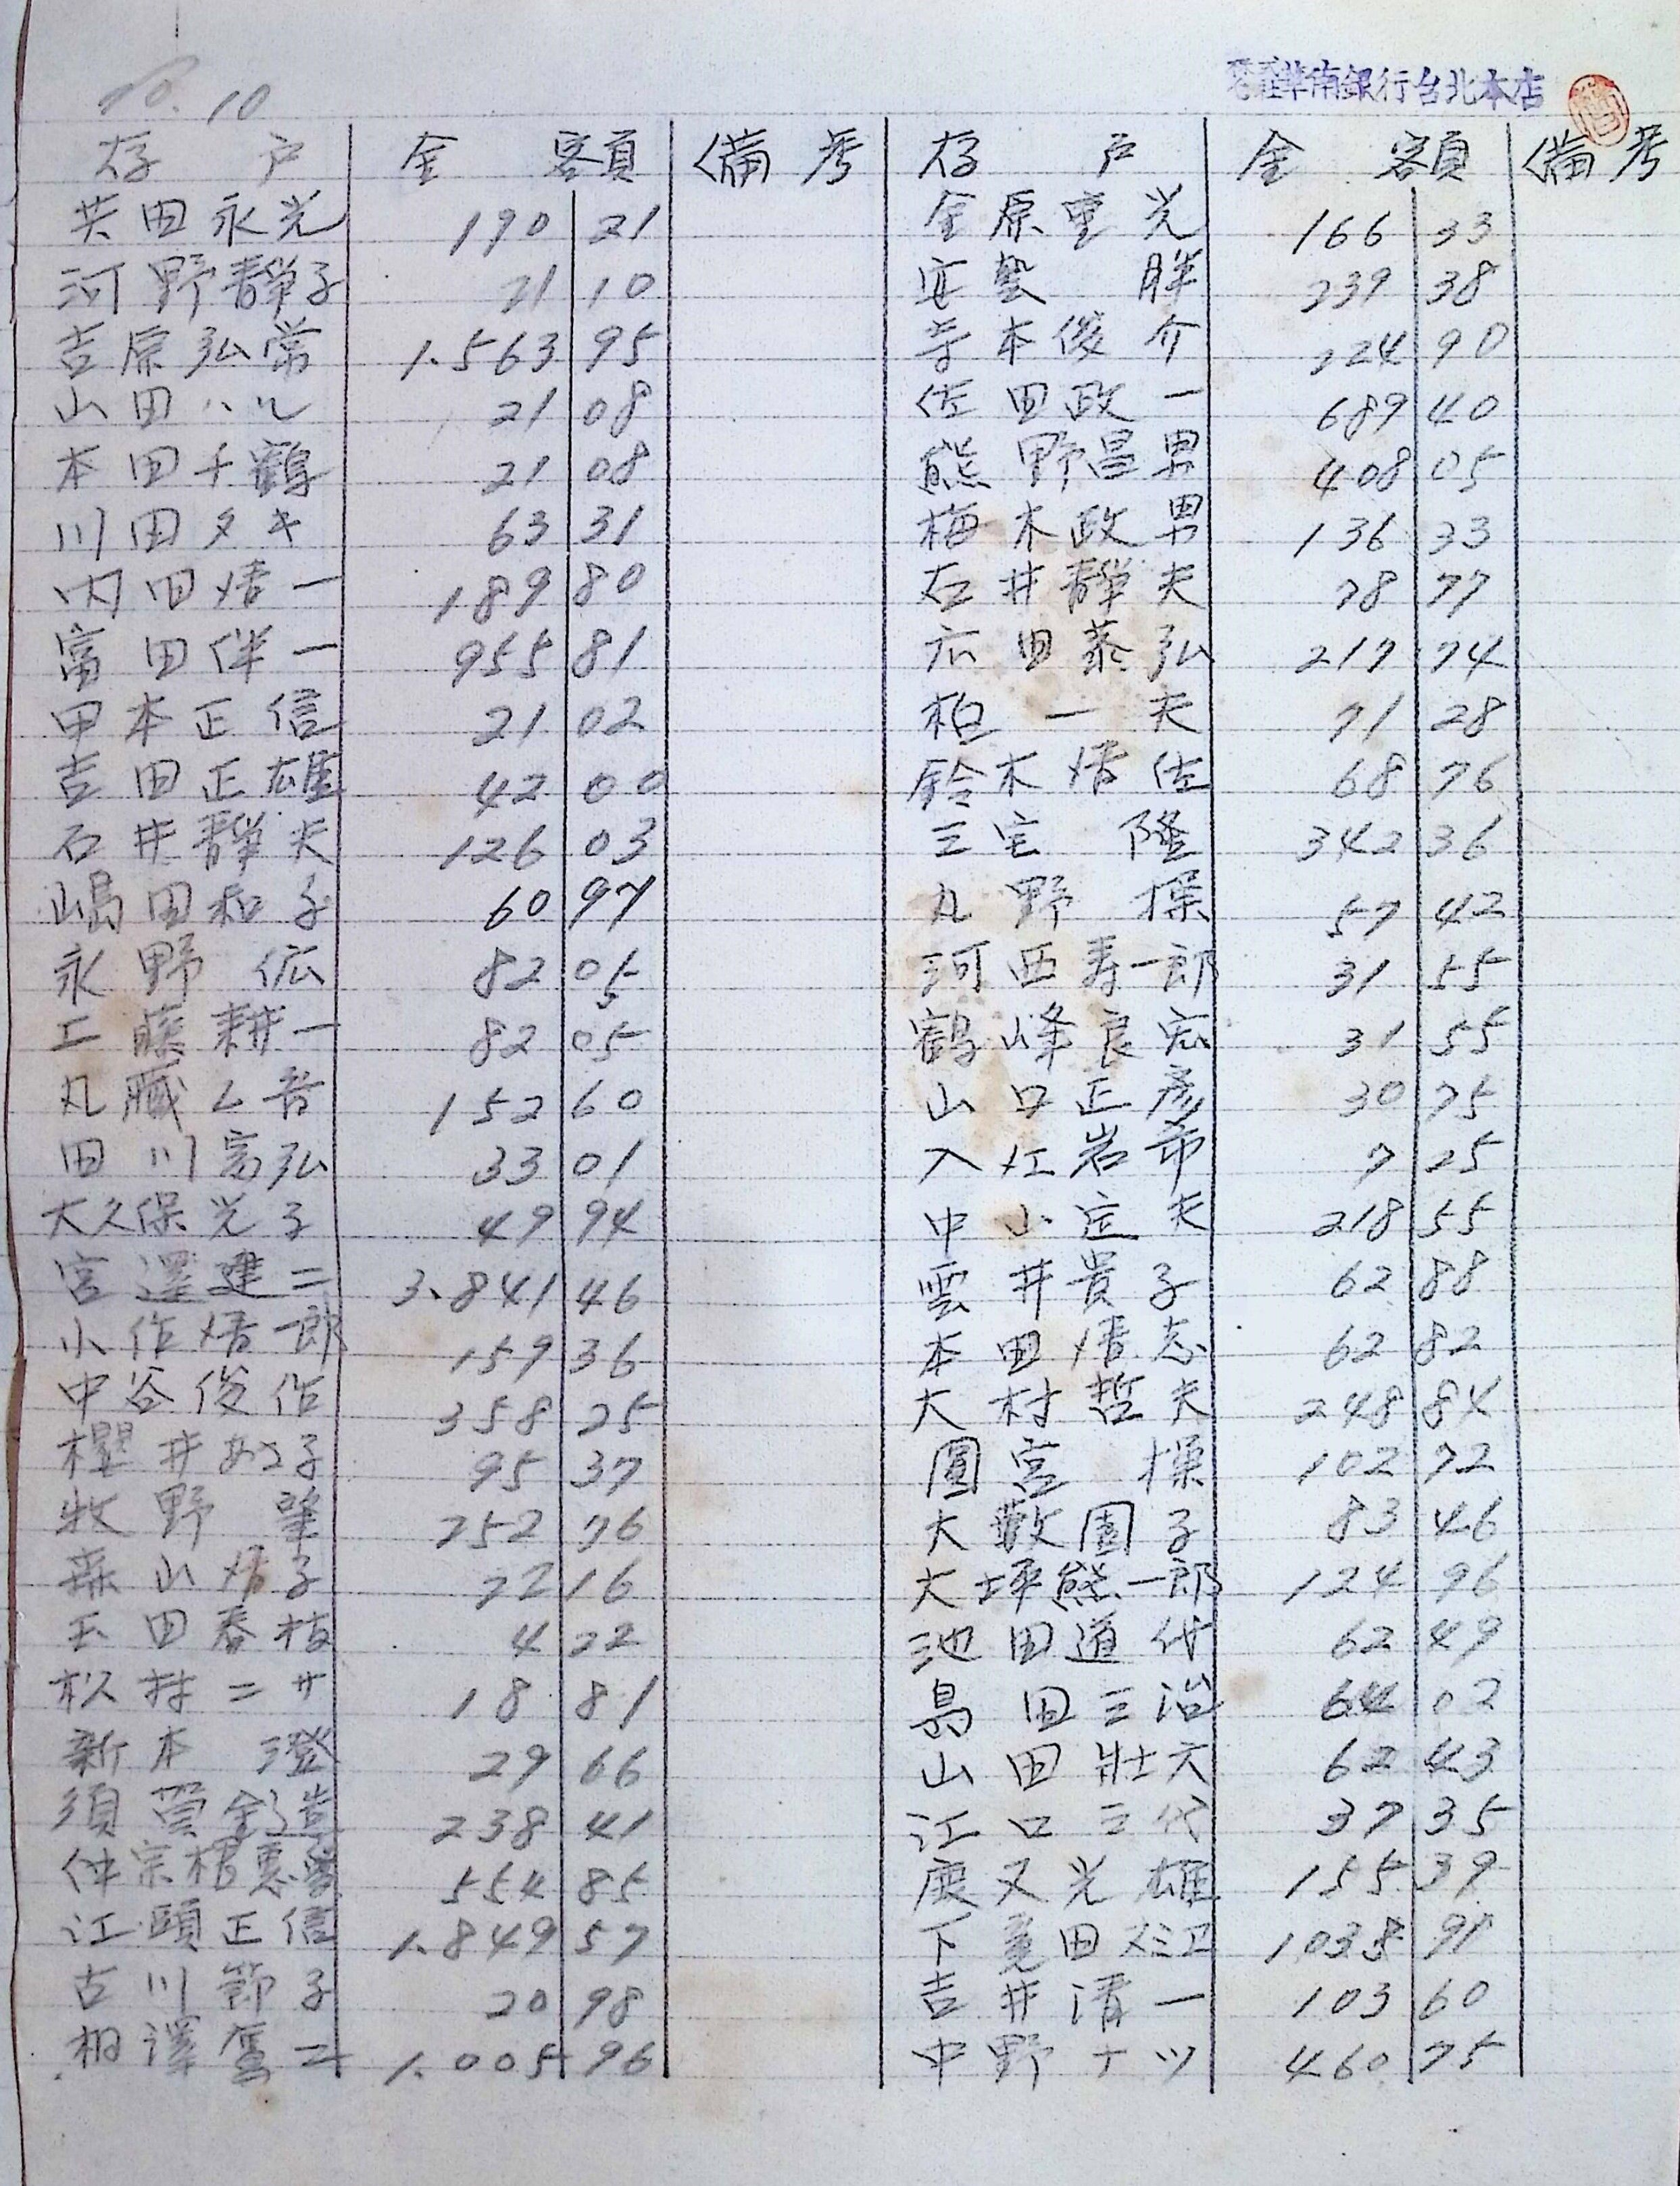 No. 10
株式會社華南銀行台北本店
存戶 金額 備考 存戶 金額 備考
英田永光 190 21 金原重光 166 33
河野靜子 21 10 安藝胖 239 38
吉原弘常 1.563 95 寺本俊介 224 90
山田ハル 21 08 佐田政一 689 40
本田千鶴 21 08 熊野昌男 408 05
川田タキ 63 31 梅木政男 136 33
内田焙一 189 80 石井靜夫 78 77
富田伴一 955 81 広田泰弘 217 74
甲本正信 21 02 柏一夫 71 28
吉田正雄 42 00 鈴木 佐 68 76
石井靜夫 126 03 三宅隆 342 36
嶋田和子 60 97 丸野操 57 42
永野 82 05 河西寿一郎 31 55
工藤耕一 82 05 鶴峰良宏 31 55
丸 152 60 山口正彦 30 75
田川富弘 33 01 入江岩市 7 25
大久保光子 49 94 中小定夫 218 55
宮澤建二 3.841 46 雲井貴子 62 88
小作 一郎 159 36 本田 志 62 82
中谷俊作 358 25 大村哲夫 248 84
櫻井 子 95 37 圓宮操 102 72
牧野肇 252 76 大藪園子 83 46
森山 子 72 16 大坪熊一郎 124 96
玉田春枝 4 22 池田道代 62 49
松村ニサ 18 81 島田三治 64 02
新本澄 29 66 山田壯六 62 43
須賀 造 238 41 江口三代 37 35
仲宗根惠 554 85 鹿又光雄 155 39
江頭正信 1.849 57 下 田 江 1038 97
古川節子 20 98 吉井清一 103 60
相澤 二 1.005 96 中野ナツ 460 75